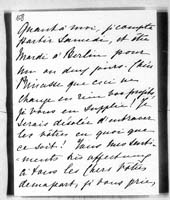 68
Quant à moi, je compte
partir Samedi, et être
Mardi à Berlin pour
un ou deux jours. Chère
Princesse que ceci ne
change en rien vos projets,
je vous en supplie! Je
serais désolée d'entraver
les vôtres en quoi que
ce soit! Tous mes senti-
ments très affectueux
à tous les chers vôtres
de ma part, je vous prie,